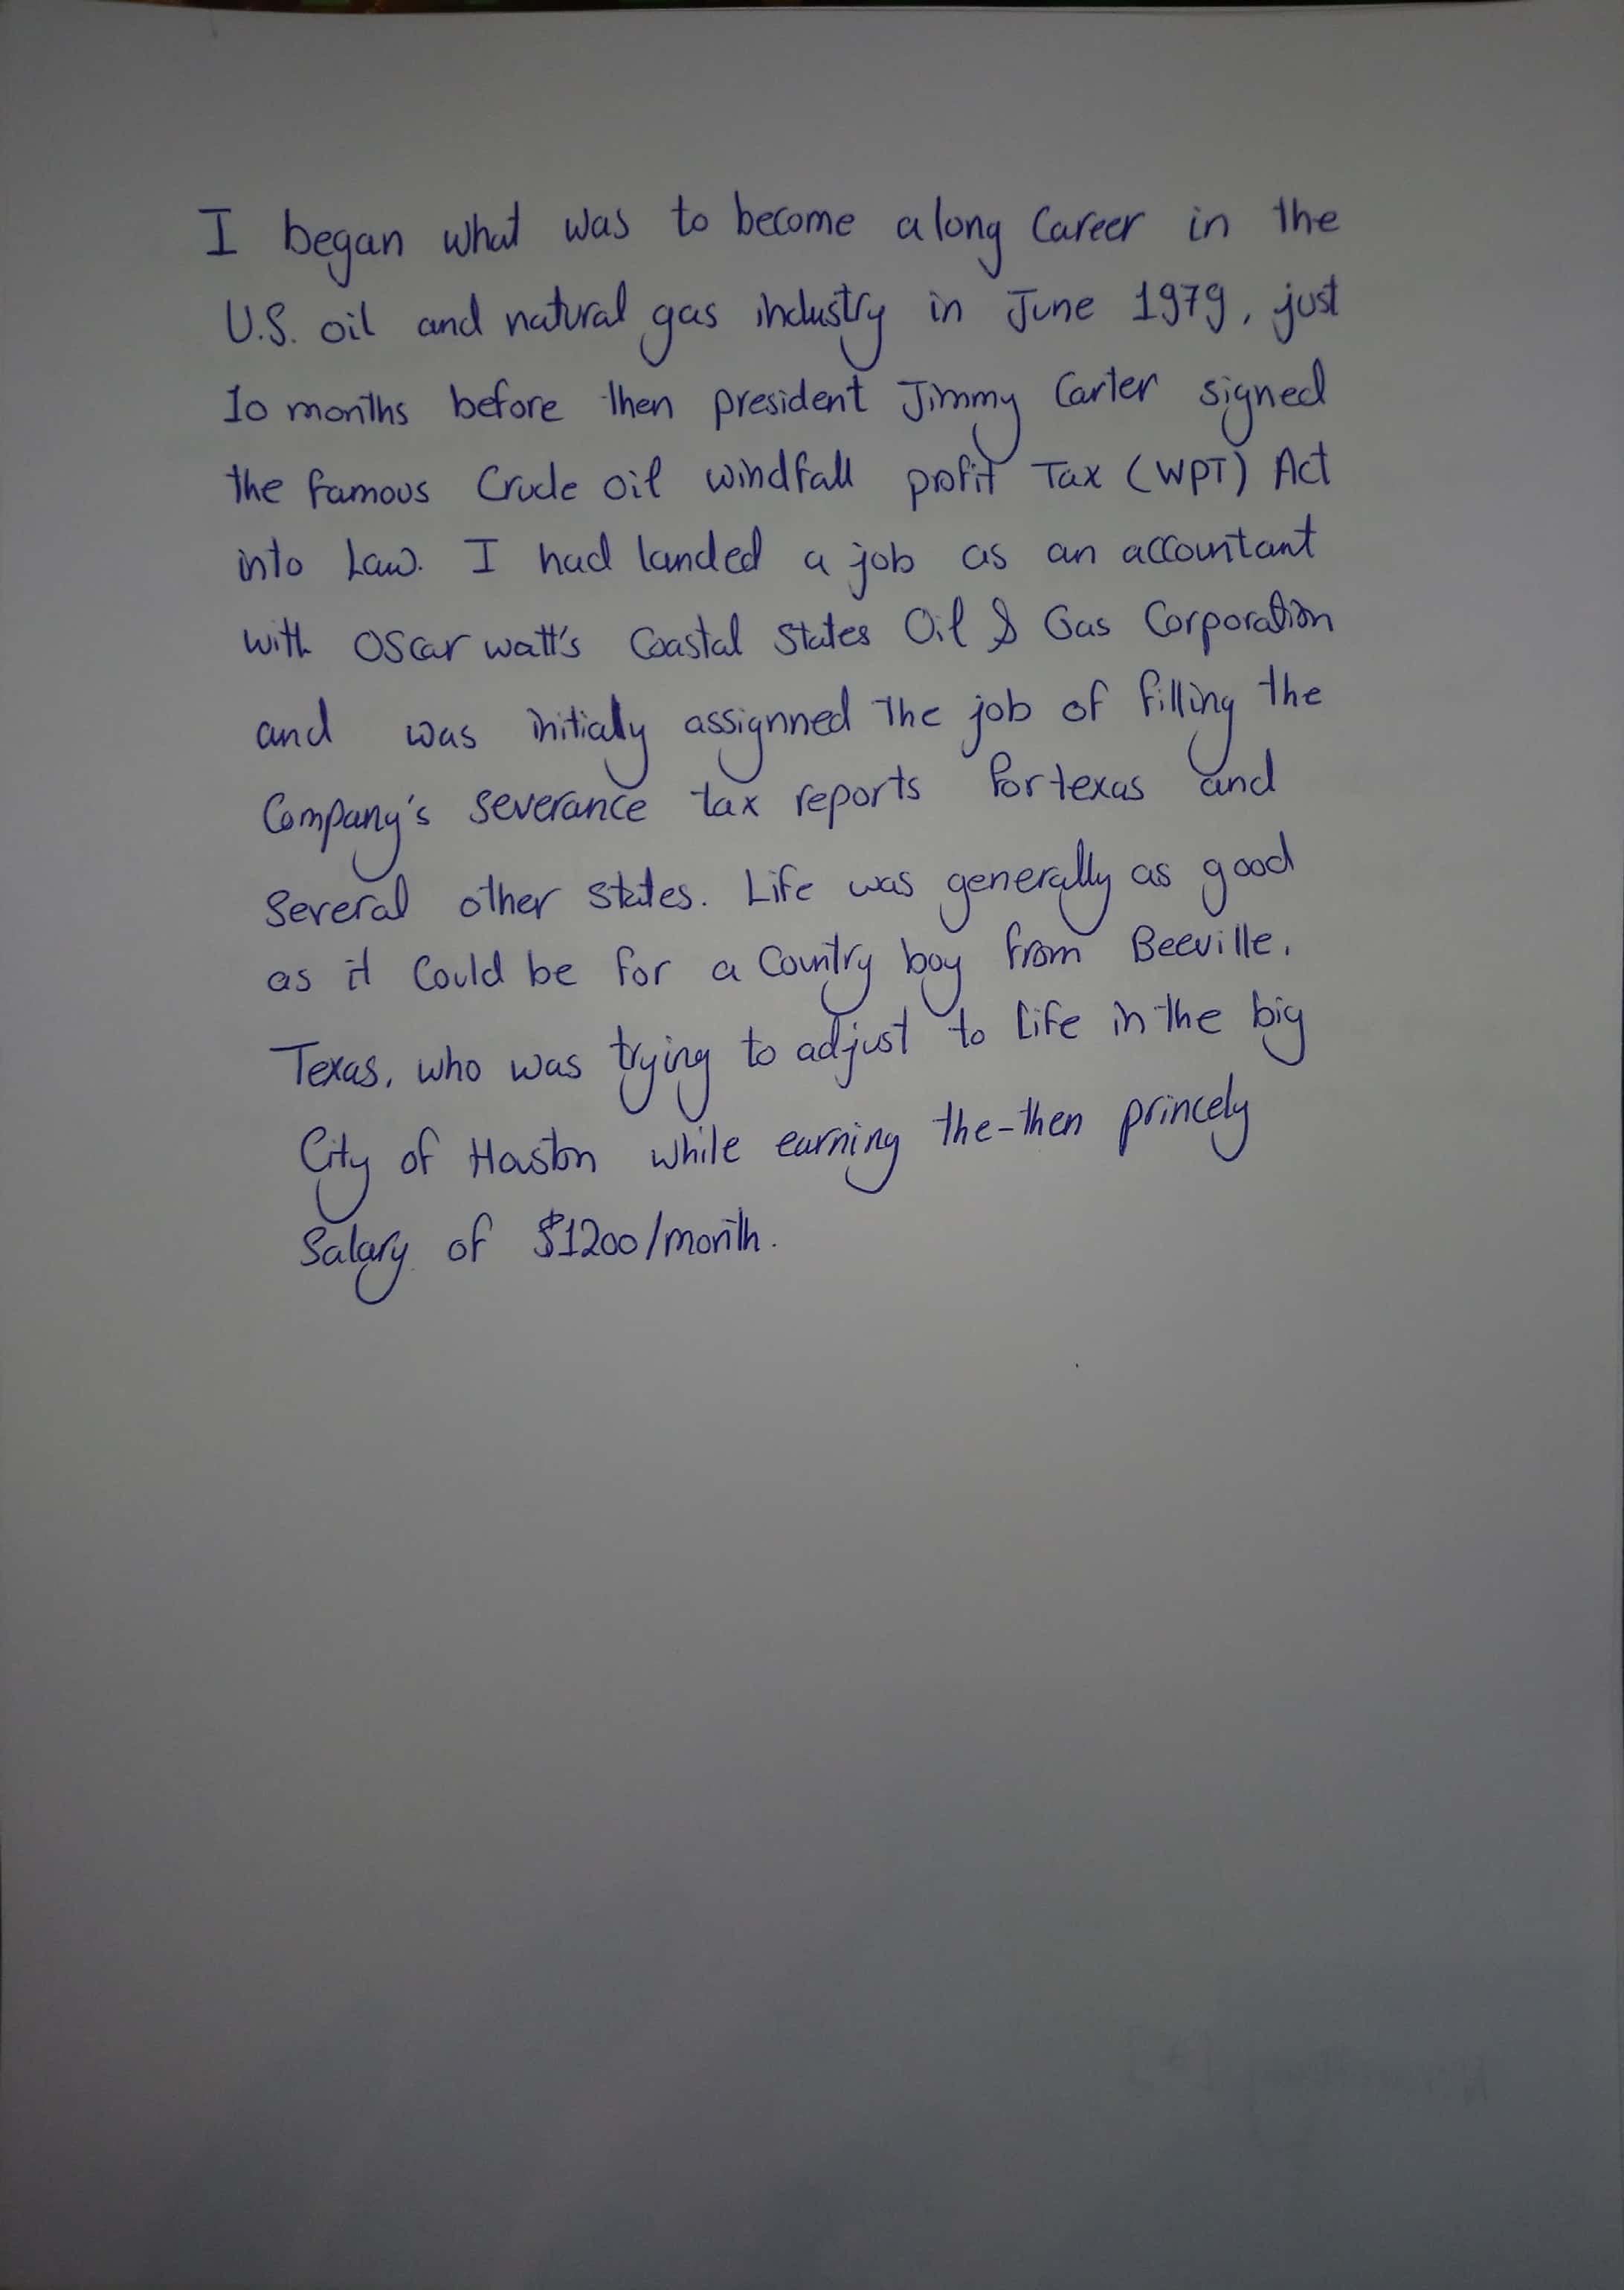 I began what was to become a long Career in the
U.S. oil and natural gas industry in June 1979, just
10 months before then president Jimmy Carter signed
the famous Crude oil windfall profit Tax (WPT) Act
into Law. I had landed a job as an accountant
with Oscar watt's Coastal States Oil & Gas Corporation
and was initialy assignned the job of filling the
Company's severance tax reports for texas and
several other states. Life was generally as good
as it Could be for a Country boy from Beeville,
Texas, who was trying to adjust to life in the big
City of Houston while earning the-then princely
Salary of $1200/month.